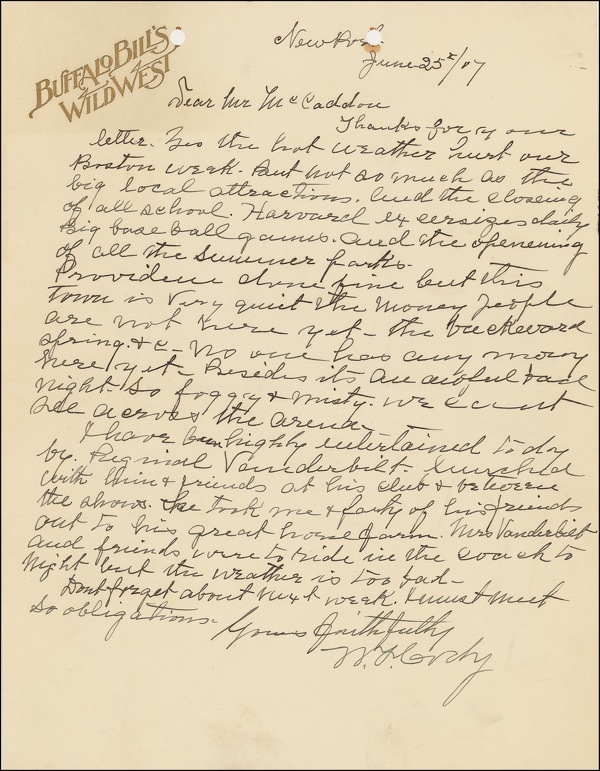 BUFFALO BILL'S
WILD WEST
June 25"/07
Dear Mr McCaddon
Thanks for your
letter. Yes the hot weather hurt our
Boston week. But not so much as the
big local attractions. And the closing
of all school. Harvard exersizes daily
Big base ball games. and the openening
of all the summer parks.
Providence done fine but this
town is very quiet the money people
are not here yet - the backward
spring & c - No one has any money
here yet - Besides its an awful bad
night. So foggy & misty. we cant
see across the arena.
I have been highly entertained to day
by. Reginal Vanderbilt - lunched
with him & friends at his club & between
the shows. He took me & party of his friends
out to his great horse farm. Mrs Vanderbilt
and friends were to ride in the coach to
night but the weather is too bad -
Dont forget about next week. I must meet
so obligations.
Yours faithfully
W. F. Cody